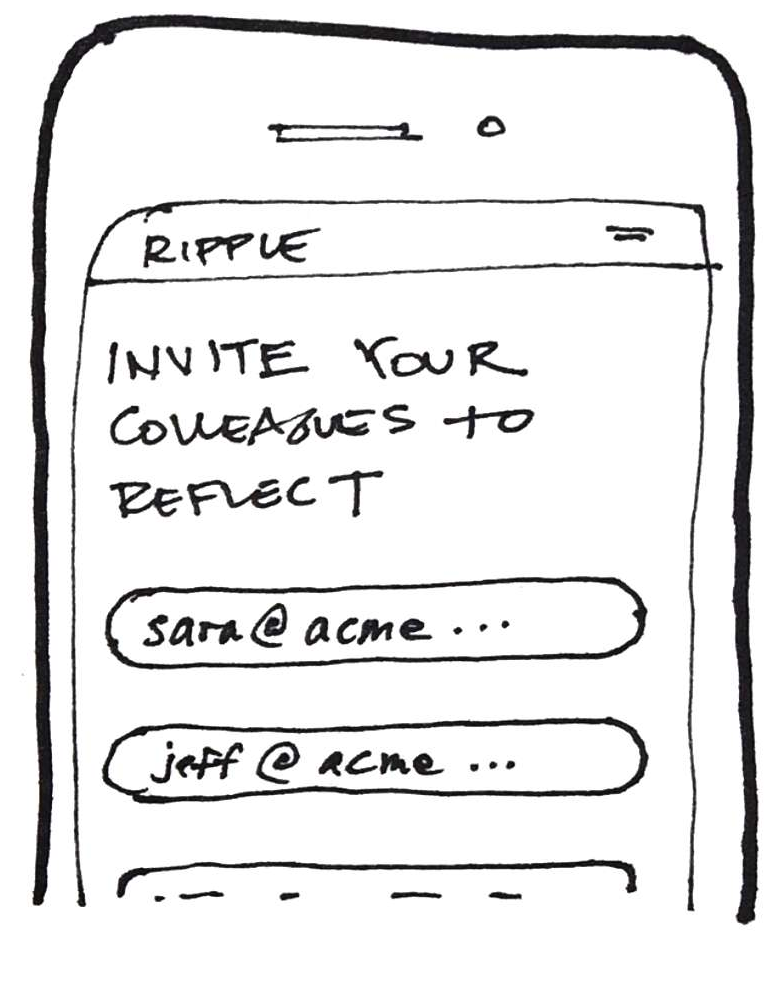 RIPPLE
INVITE YOUR
COLLEAGUES TO
REFLECT
sara@acme...
jeff@acme...